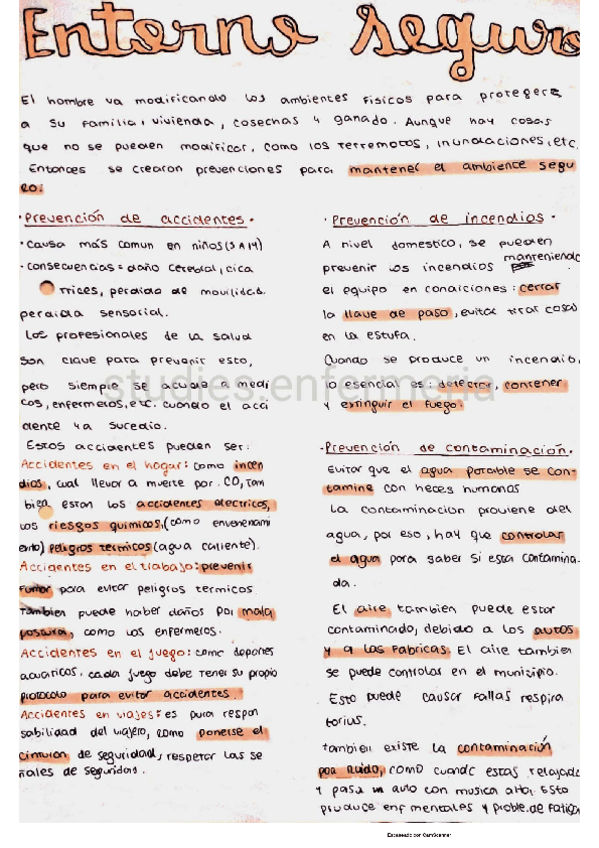 Entorno seguro
El hombre va modificando los ambientes fisicos para protegerse
a su familia, vivienda, cosechas y ganado. Aunque hay cosas
que no se pueden modificar, como los terremotos, inundaciones, etc.
Entonces se crearon prevenciones para mantener el ambiente segu
ro.
· Prevención de accidentes.
· causa más comun en niños (5 a 14)
· consecuencias = daño cerebral, cica
trices, perdida de movilidad.
perdida sensorial.
Los profesionales de la salud
son clave para prevenir esto,
pero siempre se acude a medi
cos, enfermeros, etc. cuando el acci
dente ya sucedio.
Estos accidentes pueden ser:
Accidentes en el hogar: como incen
dios, cual llevar a muerte por CO, Tam
bien estan los accidentes electricos,
los riesgos quimicos, (como envenenami
ento) peligros termicos (agua caliente).
Accidentes en el trabajo: prevenir
fumar para evitar peligros termicos
Tambien puede haber daños por mala
postura, como los enfermeros.
Accidentes en el juego: como deportes
acuaticos. cada juego debe tener su propio
protocolo para evitar accidentes.
Accidentes en viajes: es pura respon
sabilidad del viajero, como ponerse el
cinturon de seguridad, respetar las se
ñales de seguridad.
· Prevención de incendios.
A nivel domestico, se pueden
prevenir los incendios manteniendo
el equipo en condiciones: cerrar
la llave de paso, evitar tirar cosas
en la estufa.
Cuando se produce un incendio,
lo esencial es: detectar, contener
y extinguir el fuego.
· Prevención de contaminación.
Evitar que el agua potable se con-
tamine con heces humanas
La contaminacion proviene del
agua, por eso, hay que controlar
el agua para saber si esta contamina-
da.
El aire tambien puede estar
contaminado, debido a los autos
y a las fabricas. El aire tambien
se puede controlar en el municipio.
Esto puede causar fallas respira
torias.
tambien existe la contaminación
por ruido, como cuando estas relajado
y pasa un auto con musica alta. Esto
produce enf mentales y proble. de fatiga
studies.enfermeria
Escaneado con CamScanner